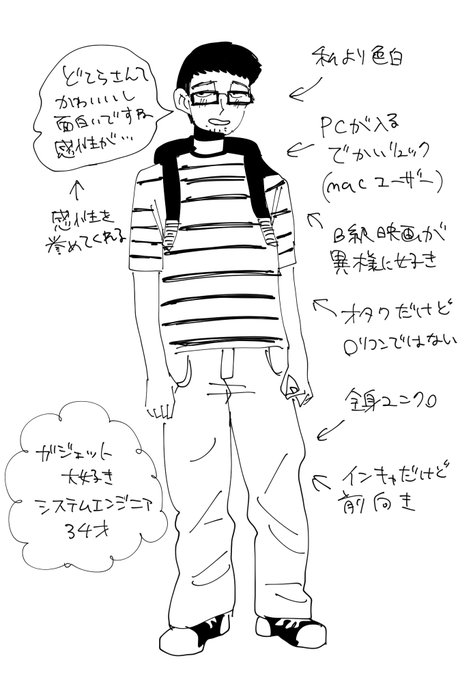 どてらさんて
かわいいし
面白いですね
感性が…
感性を
誉めてくれる
ガジェット
大好き
システムエンジニア
34才
私より色白
PCが入る
でかいリュック
(macユーザー)
B級映画が
異様に好き
オタクだけど
ロリコンではない
全身ユニクロ
インキャだけど
前向き